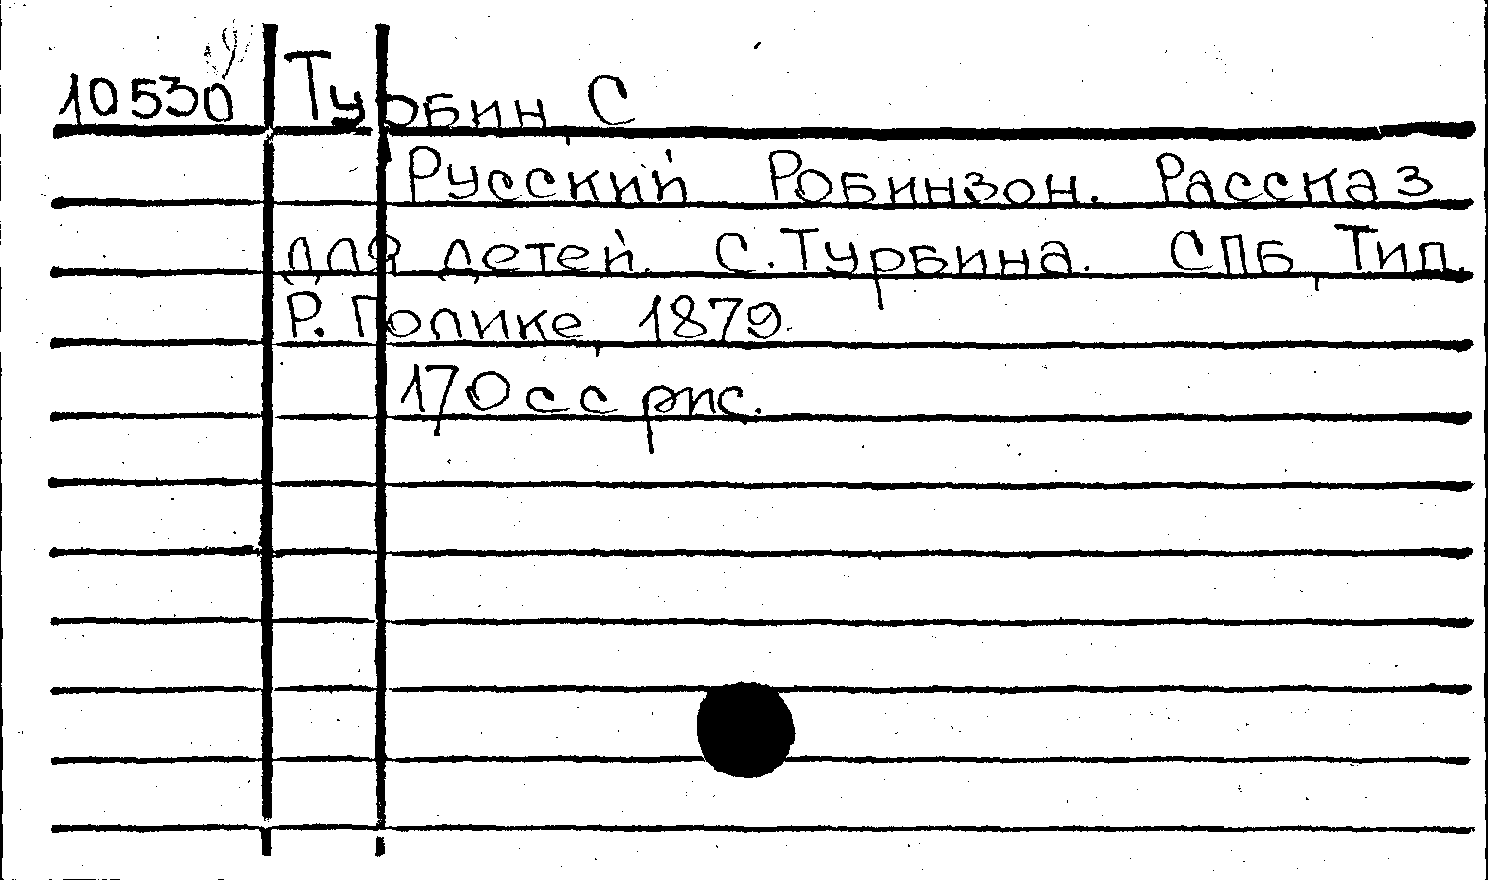 10530 Турбин, С
Русский Робинзон. Рассказ
для детей. С. Турбина. СПБ, Тип.
Р. Голике, 1879.
170 с с рис.